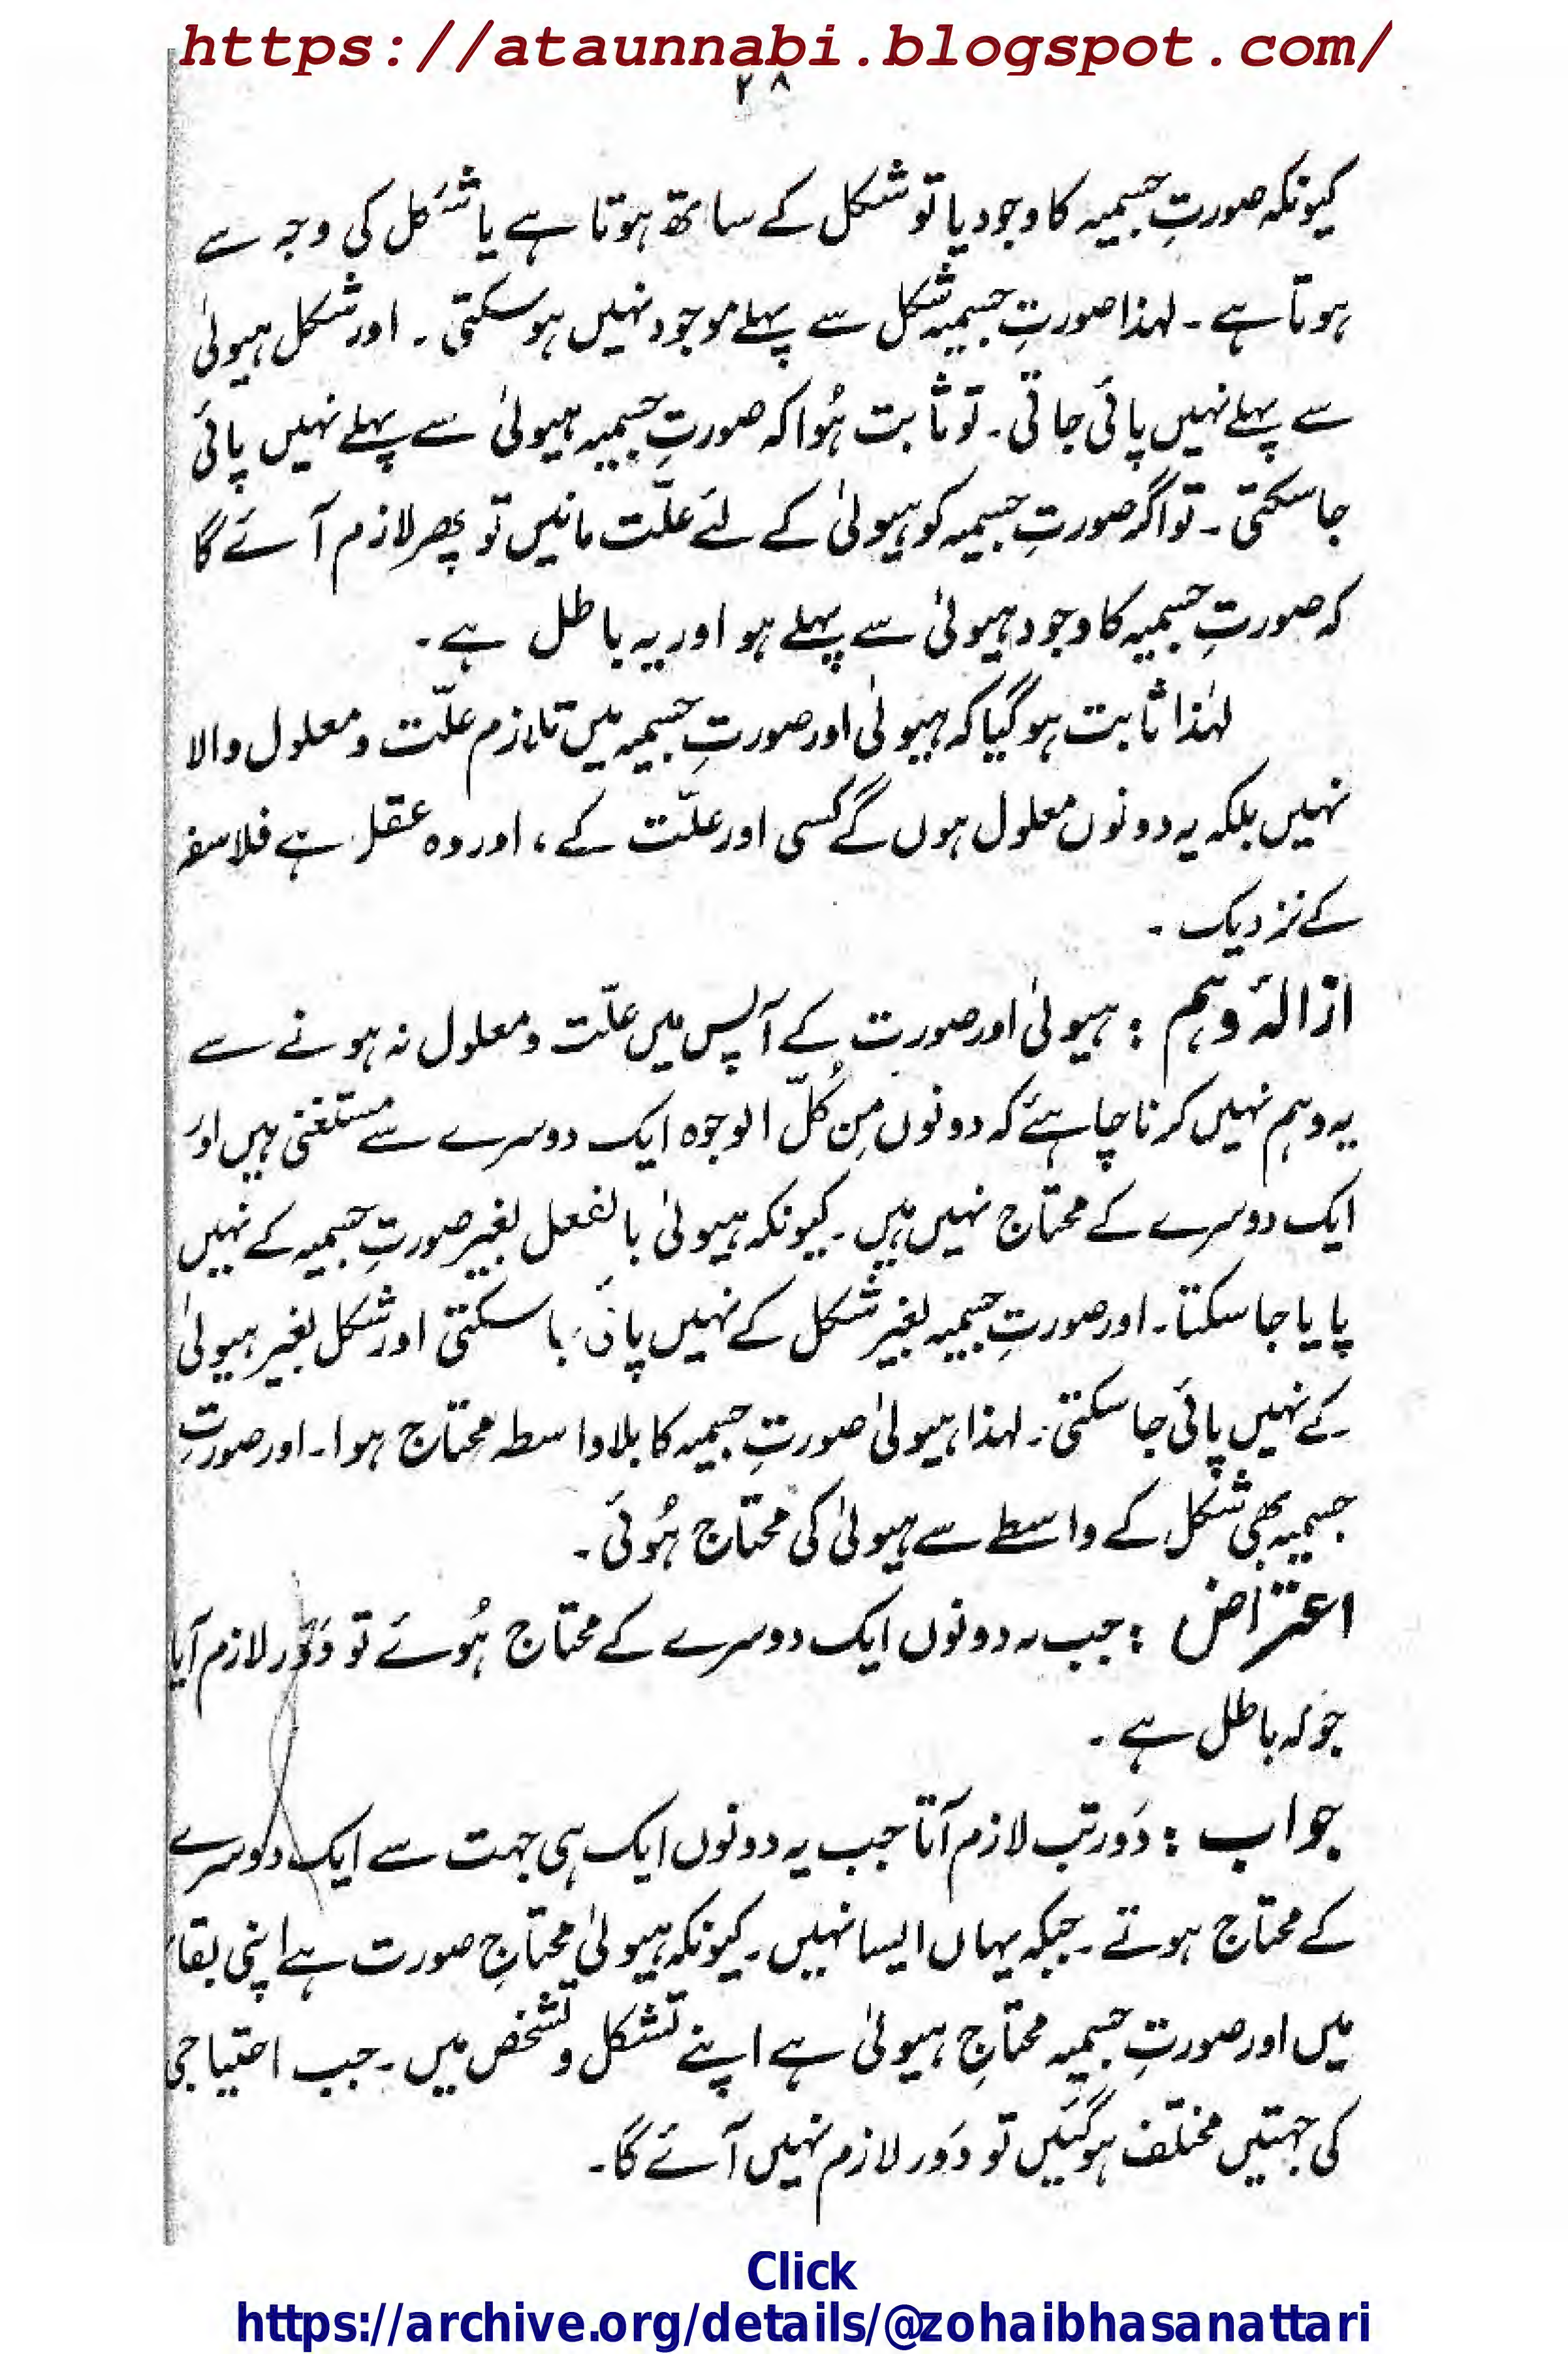 https://ataunnabi.blogspot.com/
۲۸
کیونکہ صورتِ جسمیہ کا وجود یا تو شکل کے ساتھ ہوتا ہے یا شکل کی وجہ سے
ہوتا ہے ۔ لہذا صورتِ جسمیہ شکل سے پہلے موجود نہیں ہو سکتی ۔ اور شکل ہیولیٰ
سے پہلے نہیں پائی جاتی ۔ تو ثابت ہُوا کہ صورتِ جسمیہ ہیولیٰ سے پہلے نہیں پائی
جا سکتی ۔ تو اگر صورتِ جسمیہ کو ہیولیٰ کے لئے علّت مانیں تو پھر لازم آئے گا
کہ صورتِ جسمیہ کا وجود ہیولیٰ سے پہلے ہو اور یہ باطل ہے ۔
لہٰذا ثابت ہو گیا کہ ہیولیٰ اور صورتِ جسمیہ میں تلازم علّت و معلول والا
نہیں بلکہ یہ دونوں معلول ہوں گے کسی اور علّت کے ، اور وہ عقل ہے فلاسفہ
کے نزدیک ۔
ازالۂ وہم : ہیولیٰ اور صورت کے آپس میں علّت و معلول نہ ہونے سے
یہ وہم نہیں کرنا چاہئے کہ دونوں مِن کُلّ الوجوہ ایک دوسرے سے مستغنی ہیں اور
ایک دوسرے کے محتاج نہیں ہیں ۔ کیونکہ ہیولیٰ بالفعل بغیر صورتِ جسمیہ کے نہیں
پایا جا سکتا ۔ اور صورتِ جسمیہ بغیر شکل کے نہیں پائی جا سکتی اور شکل بغیر ہیولیٰ
کے نہیں پائی جا سکتی ۔ لہذا ہیولیٰ صورتِ جسمیہ کا بلا واسطہ محتاج ہوا ۔ اور صورتِ
جسمیہ بھی شکل کے واسطے سے ہیولیٰ کی محتاج ہُوئی ۔
اعتراض : جب یہ دونوں ایک دوسرے کے محتاج ہُوئے تو دَور لازم آیا
جو کہ باطل ہے ۔
جواب : دَور تب لازم آتا جب یہ دونوں ایک ہی جہت سے ایک دوسرے
کے محتاج ہوتے ۔ جبکہ یہاں ایسا نہیں ۔ کیونکہ ہیولیٰ محتاجِ صورت ہے اپنی بقاء
میں اور صورتِ جسمیہ محتاجِ ہیولیٰ ہے اپنے تشکل و تشخص میں ۔ جب احتیاجی
کی جہتیں مختلف ہو گئیں تو دَور لازم نہیں آئے گا ۔
Click
https://archive.org/details/@zohaibhasanattari